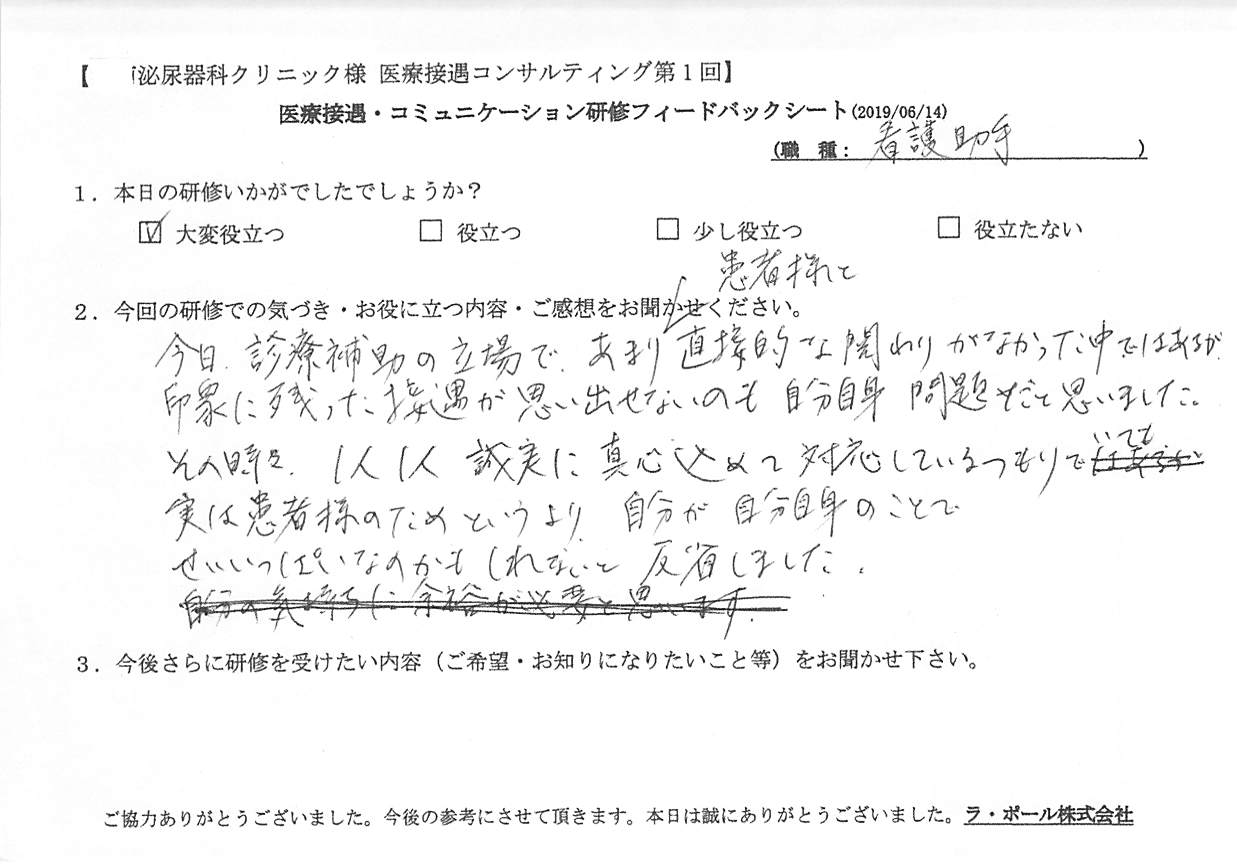 【 泌尿器科クリニック様 医療接遇コンサルティング第１回】
医療接遇・コミュニケーション研修フィードバックシート(2019/06/14)
(職 種： 看護助手 )
１．本日の研修いかがでしたでしょうか？
☑ 大変役立つ □ 役立つ □ 少し役立つ □ 役立たない
患者様と
２．今回の研修での気づき・お役に立つ内容・ご感想をお聞かせください。
今日、診療補助の立場で、あまり直接的な関わりがなかった中ではあるが、
印象に残った接遇が思い出せないのも自分自身 問題だと思いました。
いても、
その時々、1人1人 誠実に真心込めて対応しているつもりで はあるが
実は患者様のためというより、自分が自分自身のことで
せいいっぱいなのかもしれないと反省しました。
自分の気持ちに余裕が必要と思います。
３．今後さらに研修を受けたい内容（ご希望・お知りになりたいこと等）をお聞かせ下さい。
ご協力ありがとうございました。今後の参考にさせて頂きます。本日は誠にありがとうございました。ラ・ポール株式会社